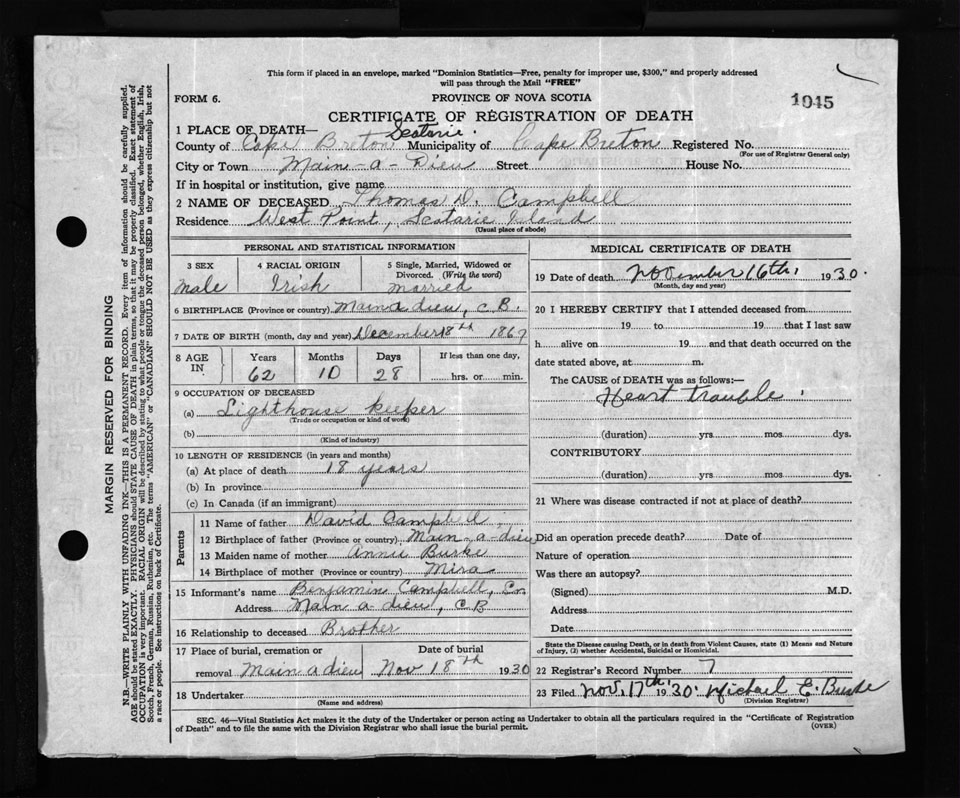 This form if placed in an envelope, marked "Dominion Statistics—Free, penalty for improper use, $300," and properly addressed
will pass through the Mail "FREE"
FORM 6.
PROVINCE OF NOVA SCOTIA
1045
CERTIFICATE OF REGISTRATION OF DEATH
1 PLACE OF DEATH— Scatarie.
County of Cape Breton Municipality of Cape Breton Registered No.
(For use of Registrar General only)
City or Town Main-a-Dieu Street House No.
If in hospital or institution, give name
2 NAME OF DECEASED Thomas D. Campbell
Residence West Point, Scatarie Island
(Usual place of abode)
PERSONAL AND STATISTICAL INFORMATION
3 SEX 4 RACIAL ORIGIN 5 Single, Married, Widowed or
Divorced. (Write the word)
Male Irish married
6 BIRTHPLACE (Province or country) Main a dieu, C.B.
7 DATE OF BIRTH (month, day and year) December 18th 1867
8 AGE IN Years Months Days If less than one day,
62 10 28 hrs. or min.
9 OCCUPATION OF DECEASED
(a) Lighthouse keeper
(Trade or occupation or kind of work)
(b)
(Kind of industry)
10 LENGTH OF RESIDENCE (in years and months)
(a) At place of death 18 years
(b) In province
(c) In Canada (if an immigrant)
Parents
11 Name of father David Campbell
12 Birthplace of father (Province or country) Main-a-dieu
13 Maiden name of mother Annie Burke
14 Birthplace of mother (Province or country) Mira
15 Informant's name Benjamin Campbell,
Address Main a dieu, C.B
16 Relationship to deceased Brother
17 Place of burial, cremation or Date of burial
removal Main a dieu Nov 18th 1930
18 Undertaker
(Name and address)
MEDICAL CERTIFICATE OF DEATH
19 Date of death November 16th, 1930.
(Month, day and year)
20 I HEREBY CERTIFY that I attended deceased from
19 to 19 that I last saw
h alive on 19 and that death occurred on the
date stated above, at m.
The CAUSE of DEATH was as follows:—
Heart trouble
(duration) yrs. mos. dys.
CONTRIBUTORY
(duration) yrs. mos. dys.
21 Where was disease contracted if not at place of death?
Did an operation precede death? Date of
Nature of operation
Was there an autopsy?
(Signed) M.D.
Address
Date
State the Disease causing Death, or in death from Violent Causes, state (1) Means and Nature
of Injury, (2) whether Accidental, Suicidal or Homicidal.
22 Registrar's Record Number 7
23 Filed Nov. 17th 1930. Michael E. Burke
(Division Registrar)
SEC. 46—Vital Statistics Act makes it the duty of the Undertaker or person acting as Undertaker to obtain all the particulars required in the "Certificate of Registration
of Death" and to file the same with the Division Registrar who shall issue the burial permit.
(OVER)
MARGIN RESERVED FOR BINDING
N.B.—WRITE PLAINLY WITH UNFADING INK—THIS IS A PERMANENT RECORD. Every item of information should be carefully supplied.
AGE should be stated EXACTLY. PHYSICIANS should STATE CAUSE OF DEATH in plain terms, so that it may be properly classified. Exact statement of
OCCUPATION is very important. RACIAL ORIGIN will be described by stating to what people or tongue the deceased person belonged, whether English, Irish,
Scotch, French, German, Russian, Ruthenian, etc. The terms "AMERICAN" or "CANADIAN" SHOULD NOT BE USED as they express citizenship but not
a race or people. See instructions on back of Certificate.